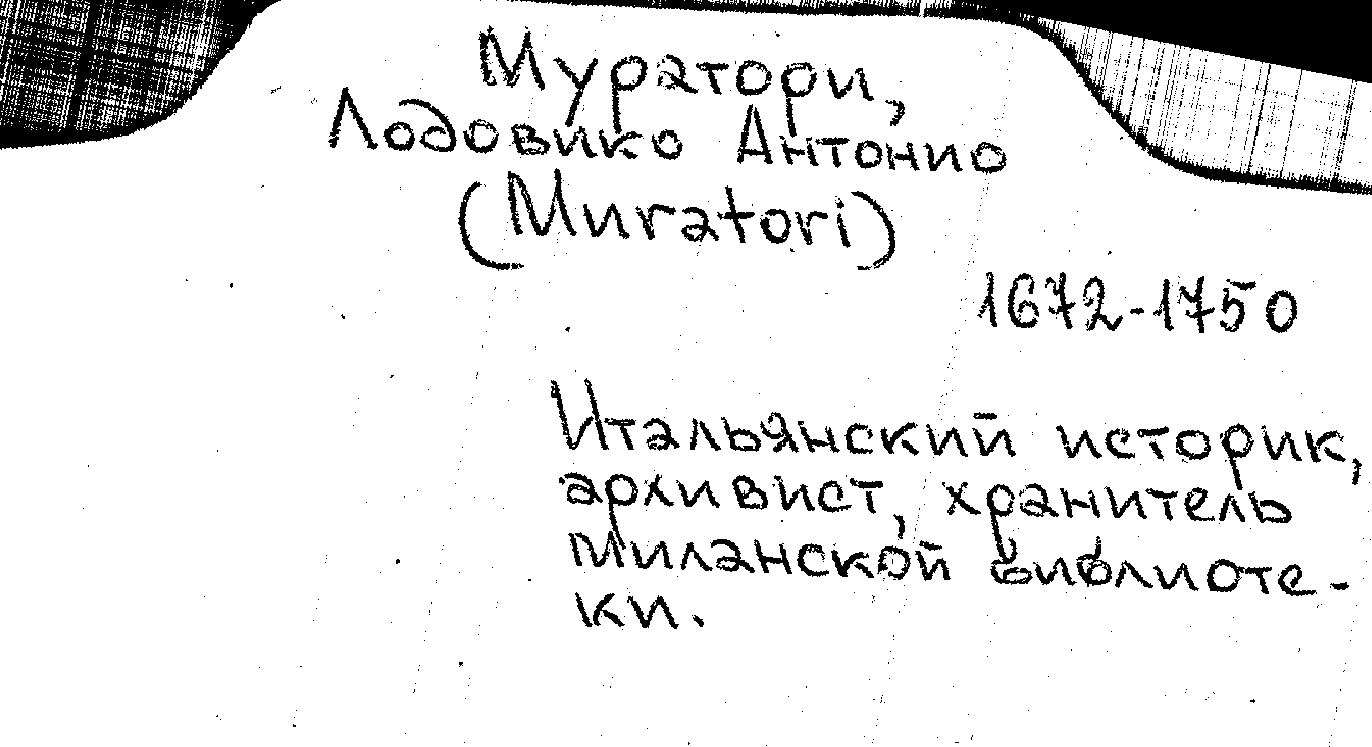 Муратори,
Лодовико Антонио
(Muratori)
1672-1750
Итальянский историк,
архивист, хранитель
Миланской библиоте-
ки.